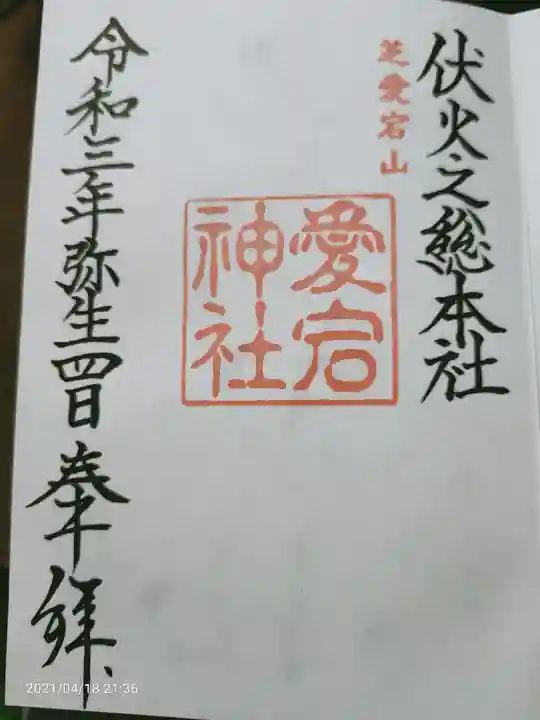 伏火之総本社
芝愛宕山
愛宕
神社
令和三年弥生四日
奉拝
2021/04/18 21:36